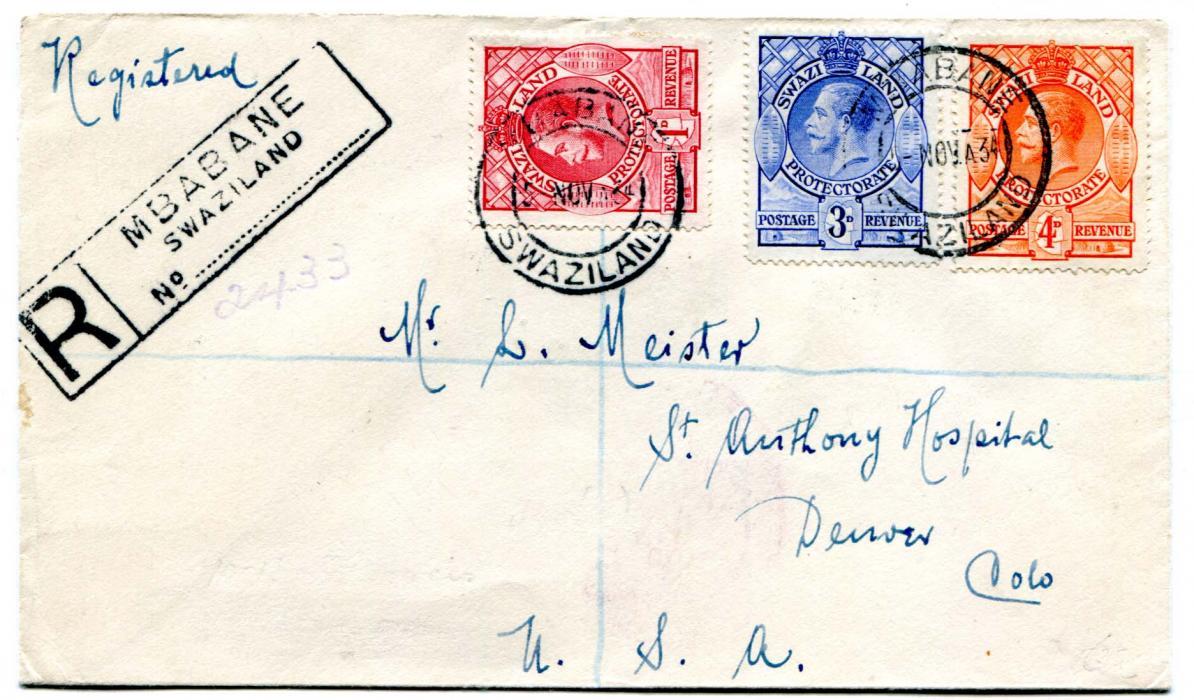 Registered
MBABANE
SWAZILAND
No
2433
R
SWAZILAND
PROTECTORATE
POSTAGE 1D REVENUE
NOV 34
SWAZILAND
SWAZILAND
PROTECTORATE
POSTAGE 3D REVENUE
SWAZILAND
PROTECTORATE
POSTAGE 4D REVENUE
MBABANE
NOV.A34
SWAZILAND
Mr. L. Meister
St. Anthony Hospital
Denver
Colo
U. S. A.